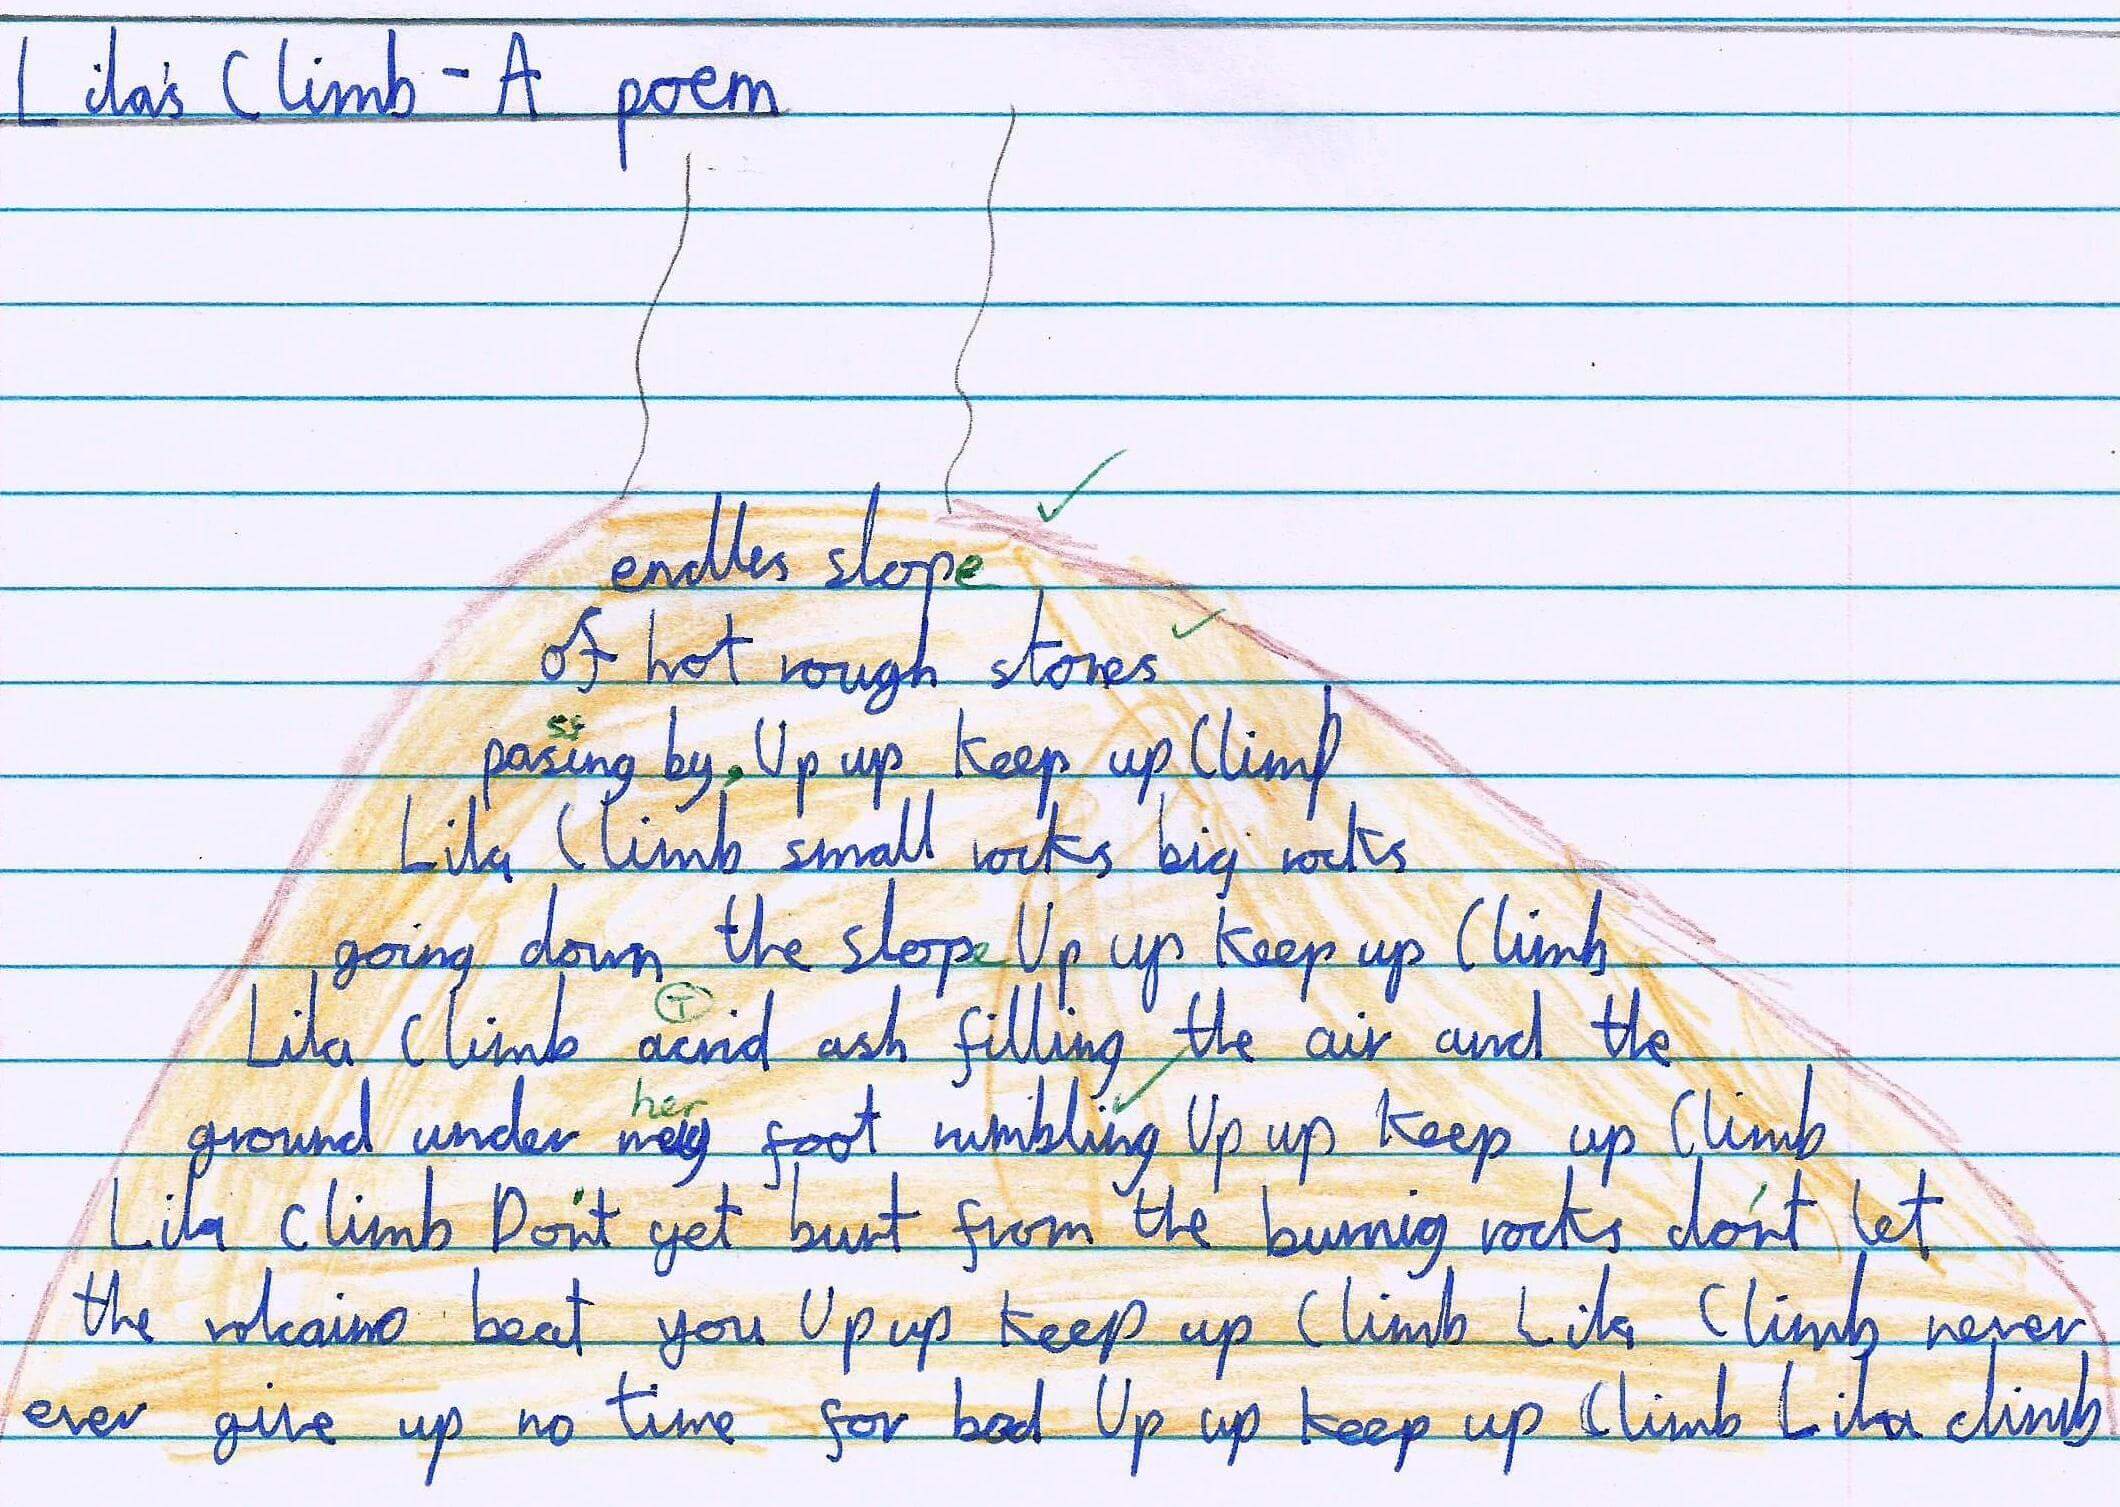 Lila's Climb - A poem
endles slope
of hot rough stones
ss
pasing by. Up up keep up Climb
Lila Climb small rocks big rocks
going down the slope Up up keep up Climb
T
Lila Climb acrid ash filling the air and the
her
ground under foot rumbling Up up keep up Climb
Lila climb Don't yet burt from the burnig rocks don't let
the volcaino beat you Up up keep up Climb Lila Climb never
ever give up no time for bed Up up keep up Climb Lila climb